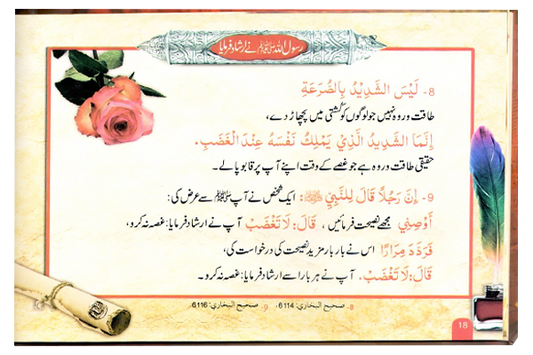 رسول اللہ ﷺ نے ارشاد فرمایا
8- لَيْسَ الشَّدِيْدُ بِالصُّرَعَةِ
طاقت ور وہ نہیں جو لوگوں کو کُشتی میں پچھاڑ دے،
اِنَّمَا الشَّدِيْدُ الَّذِيْ يَمْلِكُ نَفْسَهُ عِنْدَ الْغَضَبِ.
حقیقی طاقت ور وہ ہے جو غصے کے وقت اپنے آپ پر قابو پا لے۔
9- اِنَّ رَجُلًا قَالَ لِلنَّبِيِّ ﷺ: ایک شخص نے آپ ﷺ سے عرض کی:
اَوْصِنِي مجھے نصیحت فرمائیں، قَالَ: لَا تَغْضَبْ آپ نے ارشاد فرمایا: غصہ نہ کرو،
فَرَدَّدَ مِرَارًا اس نے بار بار مزید نصیحت کی درخواست کی،
قَالَ: لَا تَغْضَبْ. آپ نے ہر بار اسے ارشاد فرمایا: غصہ نہ کرو۔
8- صحیح البخاری: 6114، 9- صحیح البخاری: 6116
18